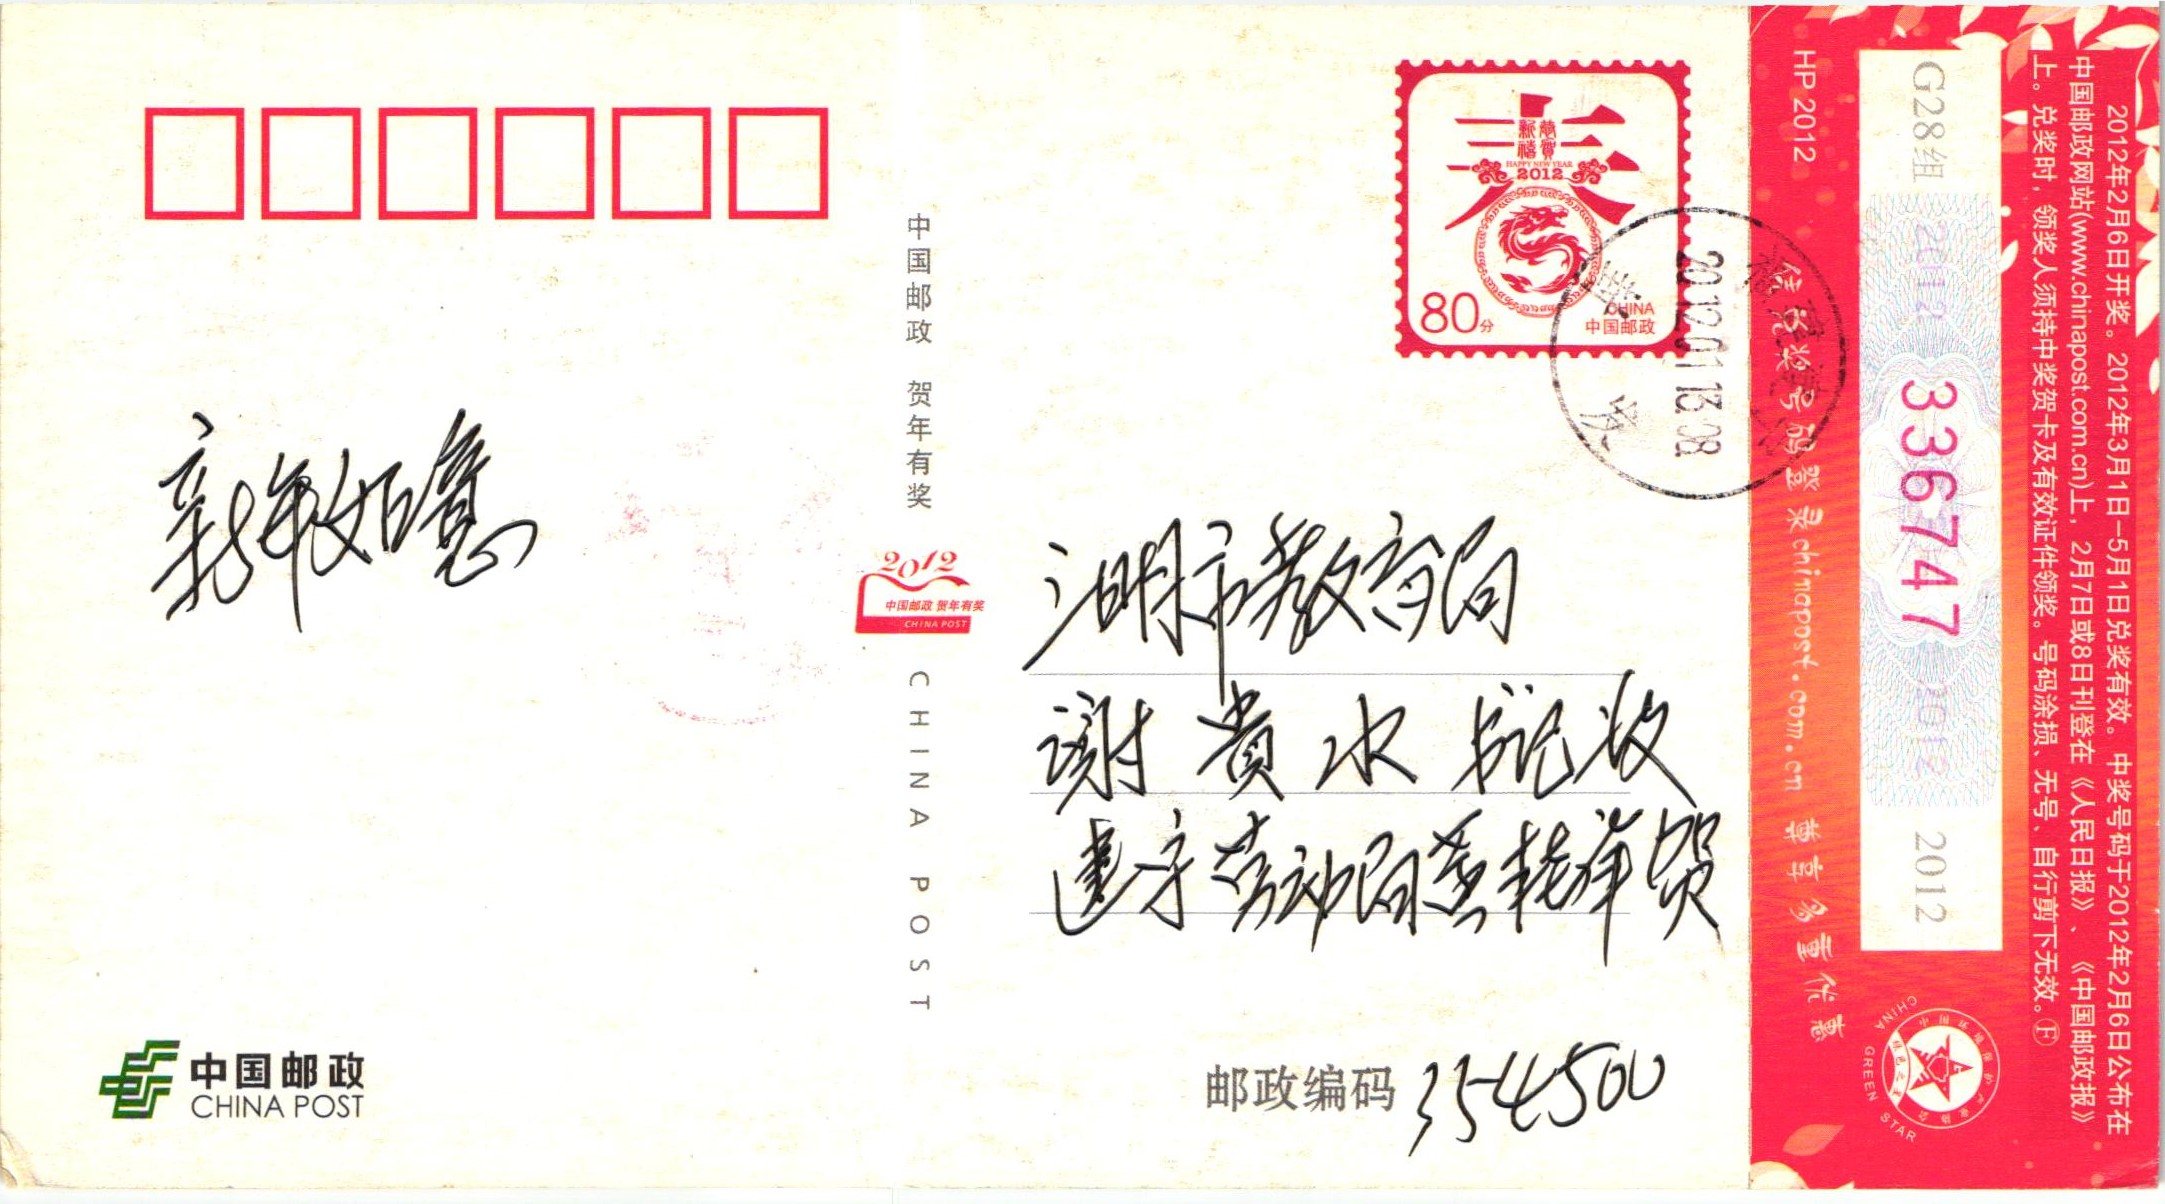 新年如意
中国邮政
CHINA POST
中国邮政 贺年有奖
2012
中国邮政 贺年有奖
CHINA POST
CHINA POST
春
恭贺新禧
HAPPY NEW YEAR
2012
80分
CHINA
中国邮政
福建
2012.01.13.08
市教育局
谢贵水书记收
建宁劳动局 年贺
邮政编码 354500
HP 2012
凭兑奖号码登录chinapost.com.cn 尊享多重优惠
G28组 2012 336747 2012 2012
2012年2月6日开奖。2012年3月1日—5月1日兑奖有效。中奖号码于2012年2月6日公布在
中国邮政网站(www.chinapost.com.cn)上，2月7日或8日刊登在《人民日报》、《中国邮政报》
上。兑奖时，领奖人须持中奖贺卡及有效证件领奖。号码涂损、无号、自行剪下无效。Ⓕ
中国环境保护产业协会
绿色之星
CHINA GREEN STAR